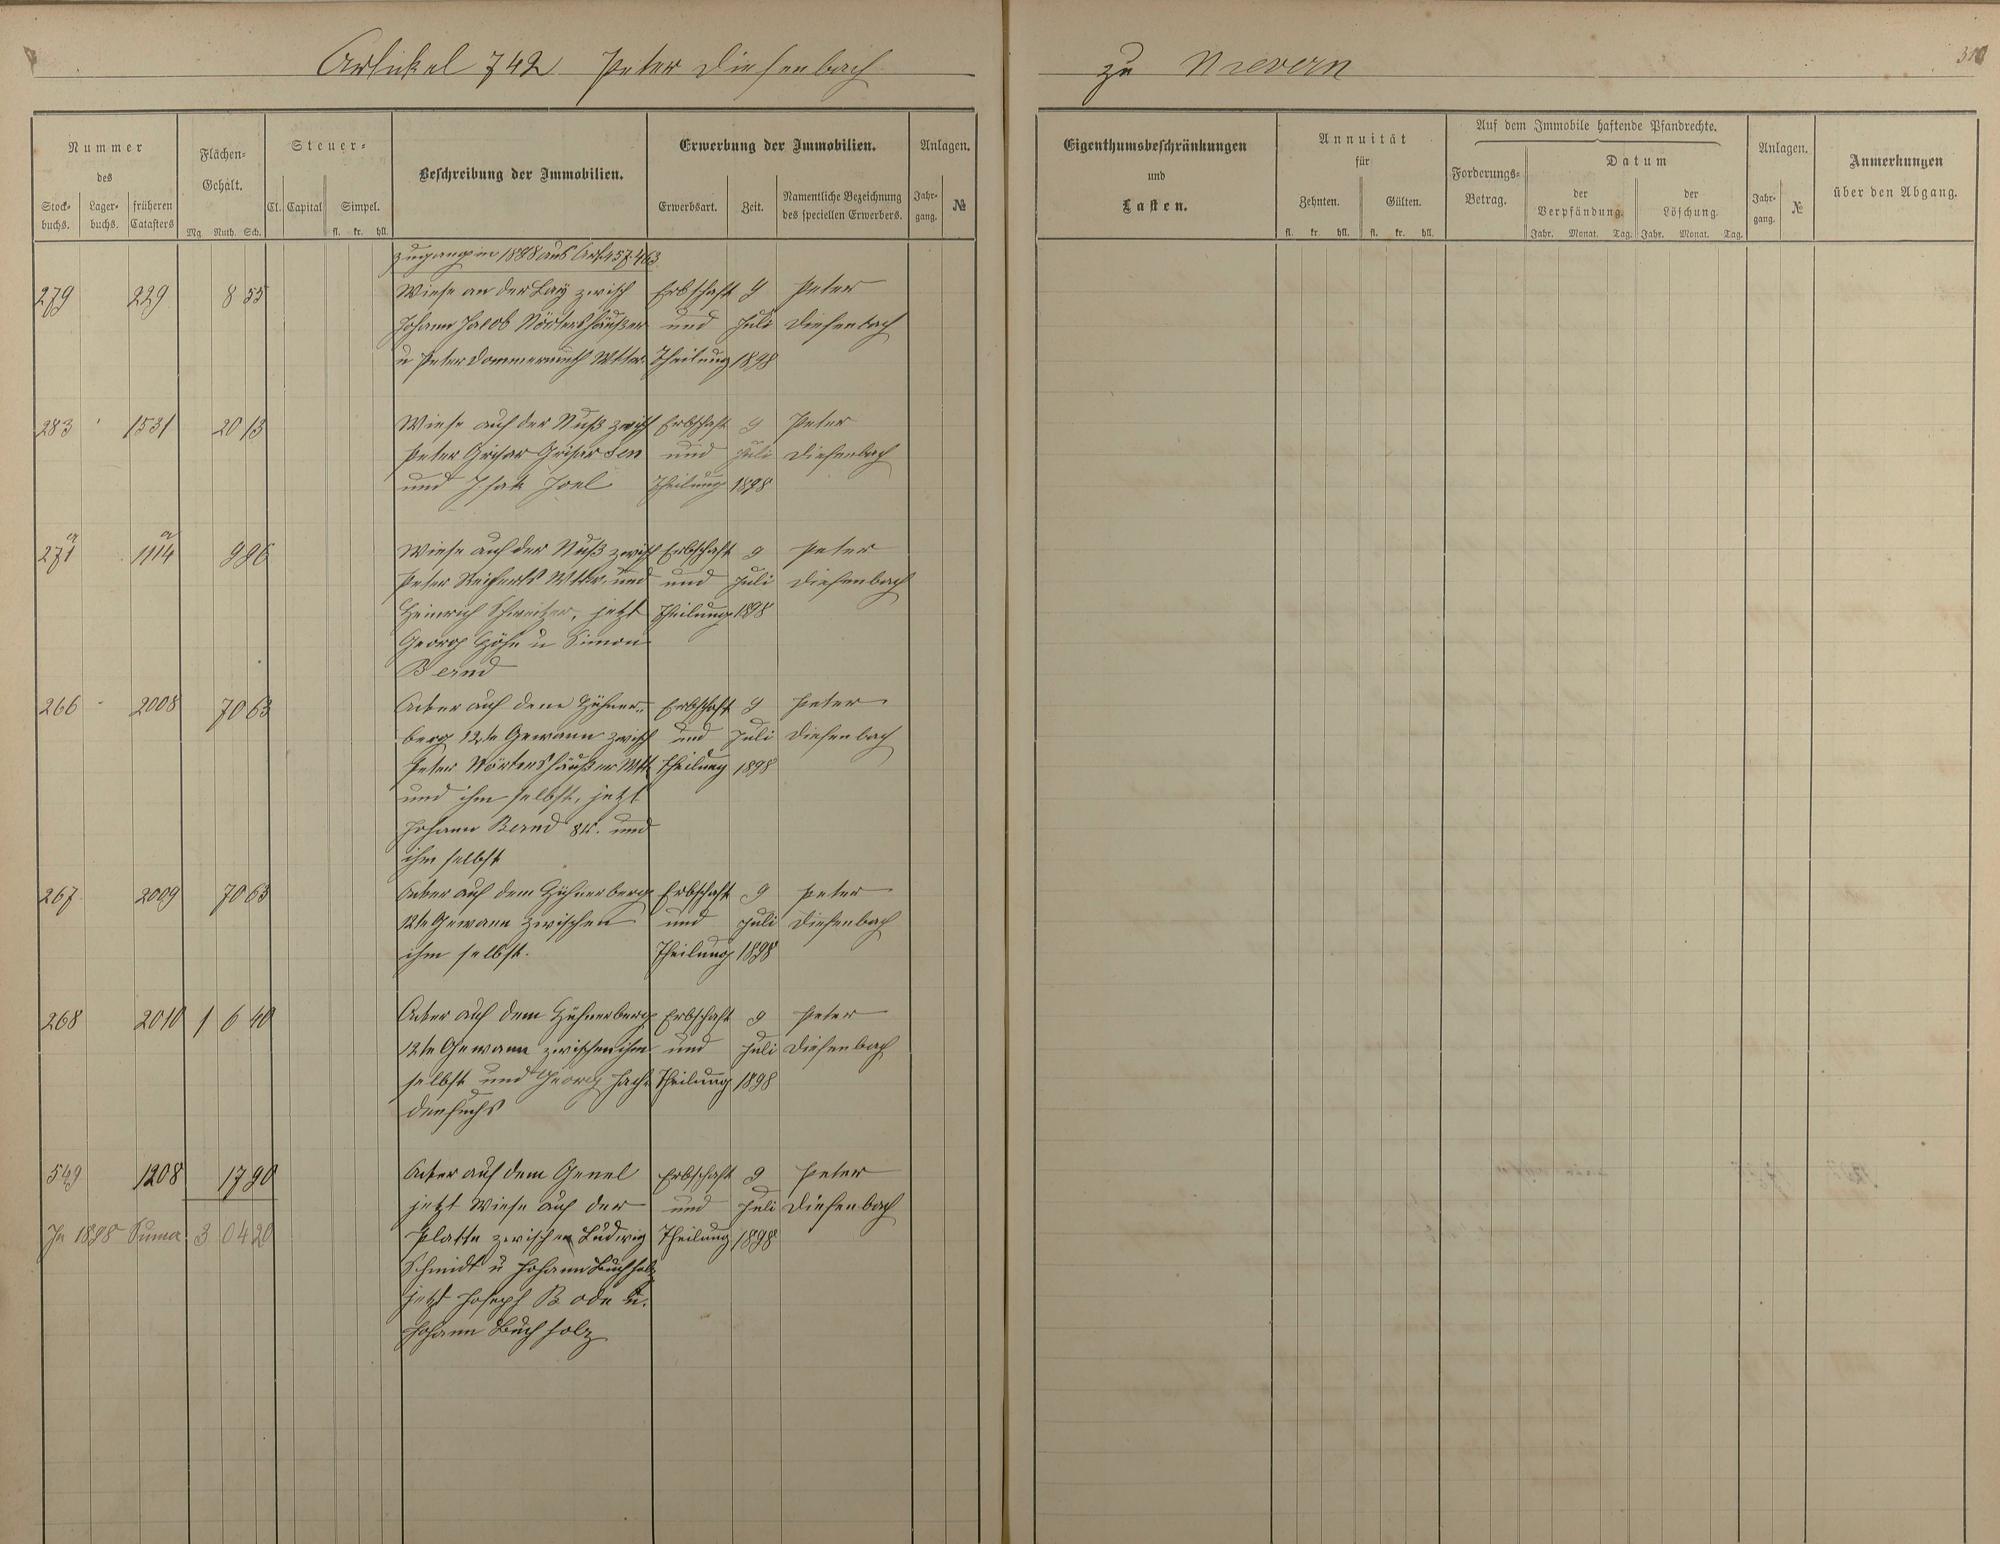 Artikel 742 Peter Diesenbach
zu Nievern
Nummer
des
Stock-
buchs.
Lager-
buchs.
früheren
Catasters
Flächen-
Gehalt.
Mg. Ruth. Sch.
Steuer-
Cl. Capital Simpel.
fl. kr. hll.
Beschreibung der Immobilien.
Erwerbung der Immobilien.
Erwerbsart. Zeit.
Namentliche Bezeichnung
des speciellen Erwerbers.
Anlagen.
Jahr-
gang.
№
Eigenthumsbeschränkungen
und
Lasten.
Annuität
für
Zehnten. Gülten.
fl. kr. hll. fl. kr. hll.
Auf dem Immobile haftende Pfandrechte.
Forderungs-
Betrag.
Datum
der
Verpfändung.
der
Löschung.
Jahr. Monat. Tag. Jahr. Monat. Tag.
Anlagen.
Jahr-
gang.
№
Anmerkungen
über den Abgang.
Zugang in 1898 aus Art. 457. 463
279 229 8 55 Wiese an der Lay zwisch Erbschaft 9 Peter
Johann Jacob Nörtershäußer und Juli Diesenbach
u Peter Dommermuth Wttw. Theilung 1898
283 1531 20 13 Wiese auf der Nuß zwisch Erbschaft 9 Peter
Peter Grisar Grisar Sen und Juli Diesenbach
und Isak Joel Theilung 1898
271a 1114a 9 96 Wiese auf der Nuß zwisch Erbschaft 9 Peter
Peter Wttw. und und Juli Diesenbach
Heinrich Schweitzer, jetzt Theilung 1898
Georg Höhn u Simon
Bernd
266 2008 70 63 Acker auf dem Hühner-
berg 12te Gewann zwisch Erbschaft und 9 Juli Peter Diesenbach
Peter Nörtershäußer Wtt Theilung 1898
und ihm selbst, jetzt
Johann Bernd 8t. und
ihm selbst
267 2009 70 63 Acker auf dem Hühnerberg Erbschaft 9 Peter
12te Gewann zwischen und Juli Diesenbach
ihm selbst. Theilung 1898
268 2010 1 6 40 Acker auf dem Hühnerberg Erbschaft 9 Peter
12te Gewann zwischen ihm und Juli Diesenbach
selbst und Georg Theilung 1898
549 1208 17 90 Acker auf dem Genel Erbschaft 9 Peter
jetzt Wiese auf der und Juli Diesenbach
In 1898 Suma 3 04 20 Platte zwischen Ludwig Theilung 1898
Schmidt u Johann Buchholz
jetzt Joseph Bode u.
Johann Buchholz